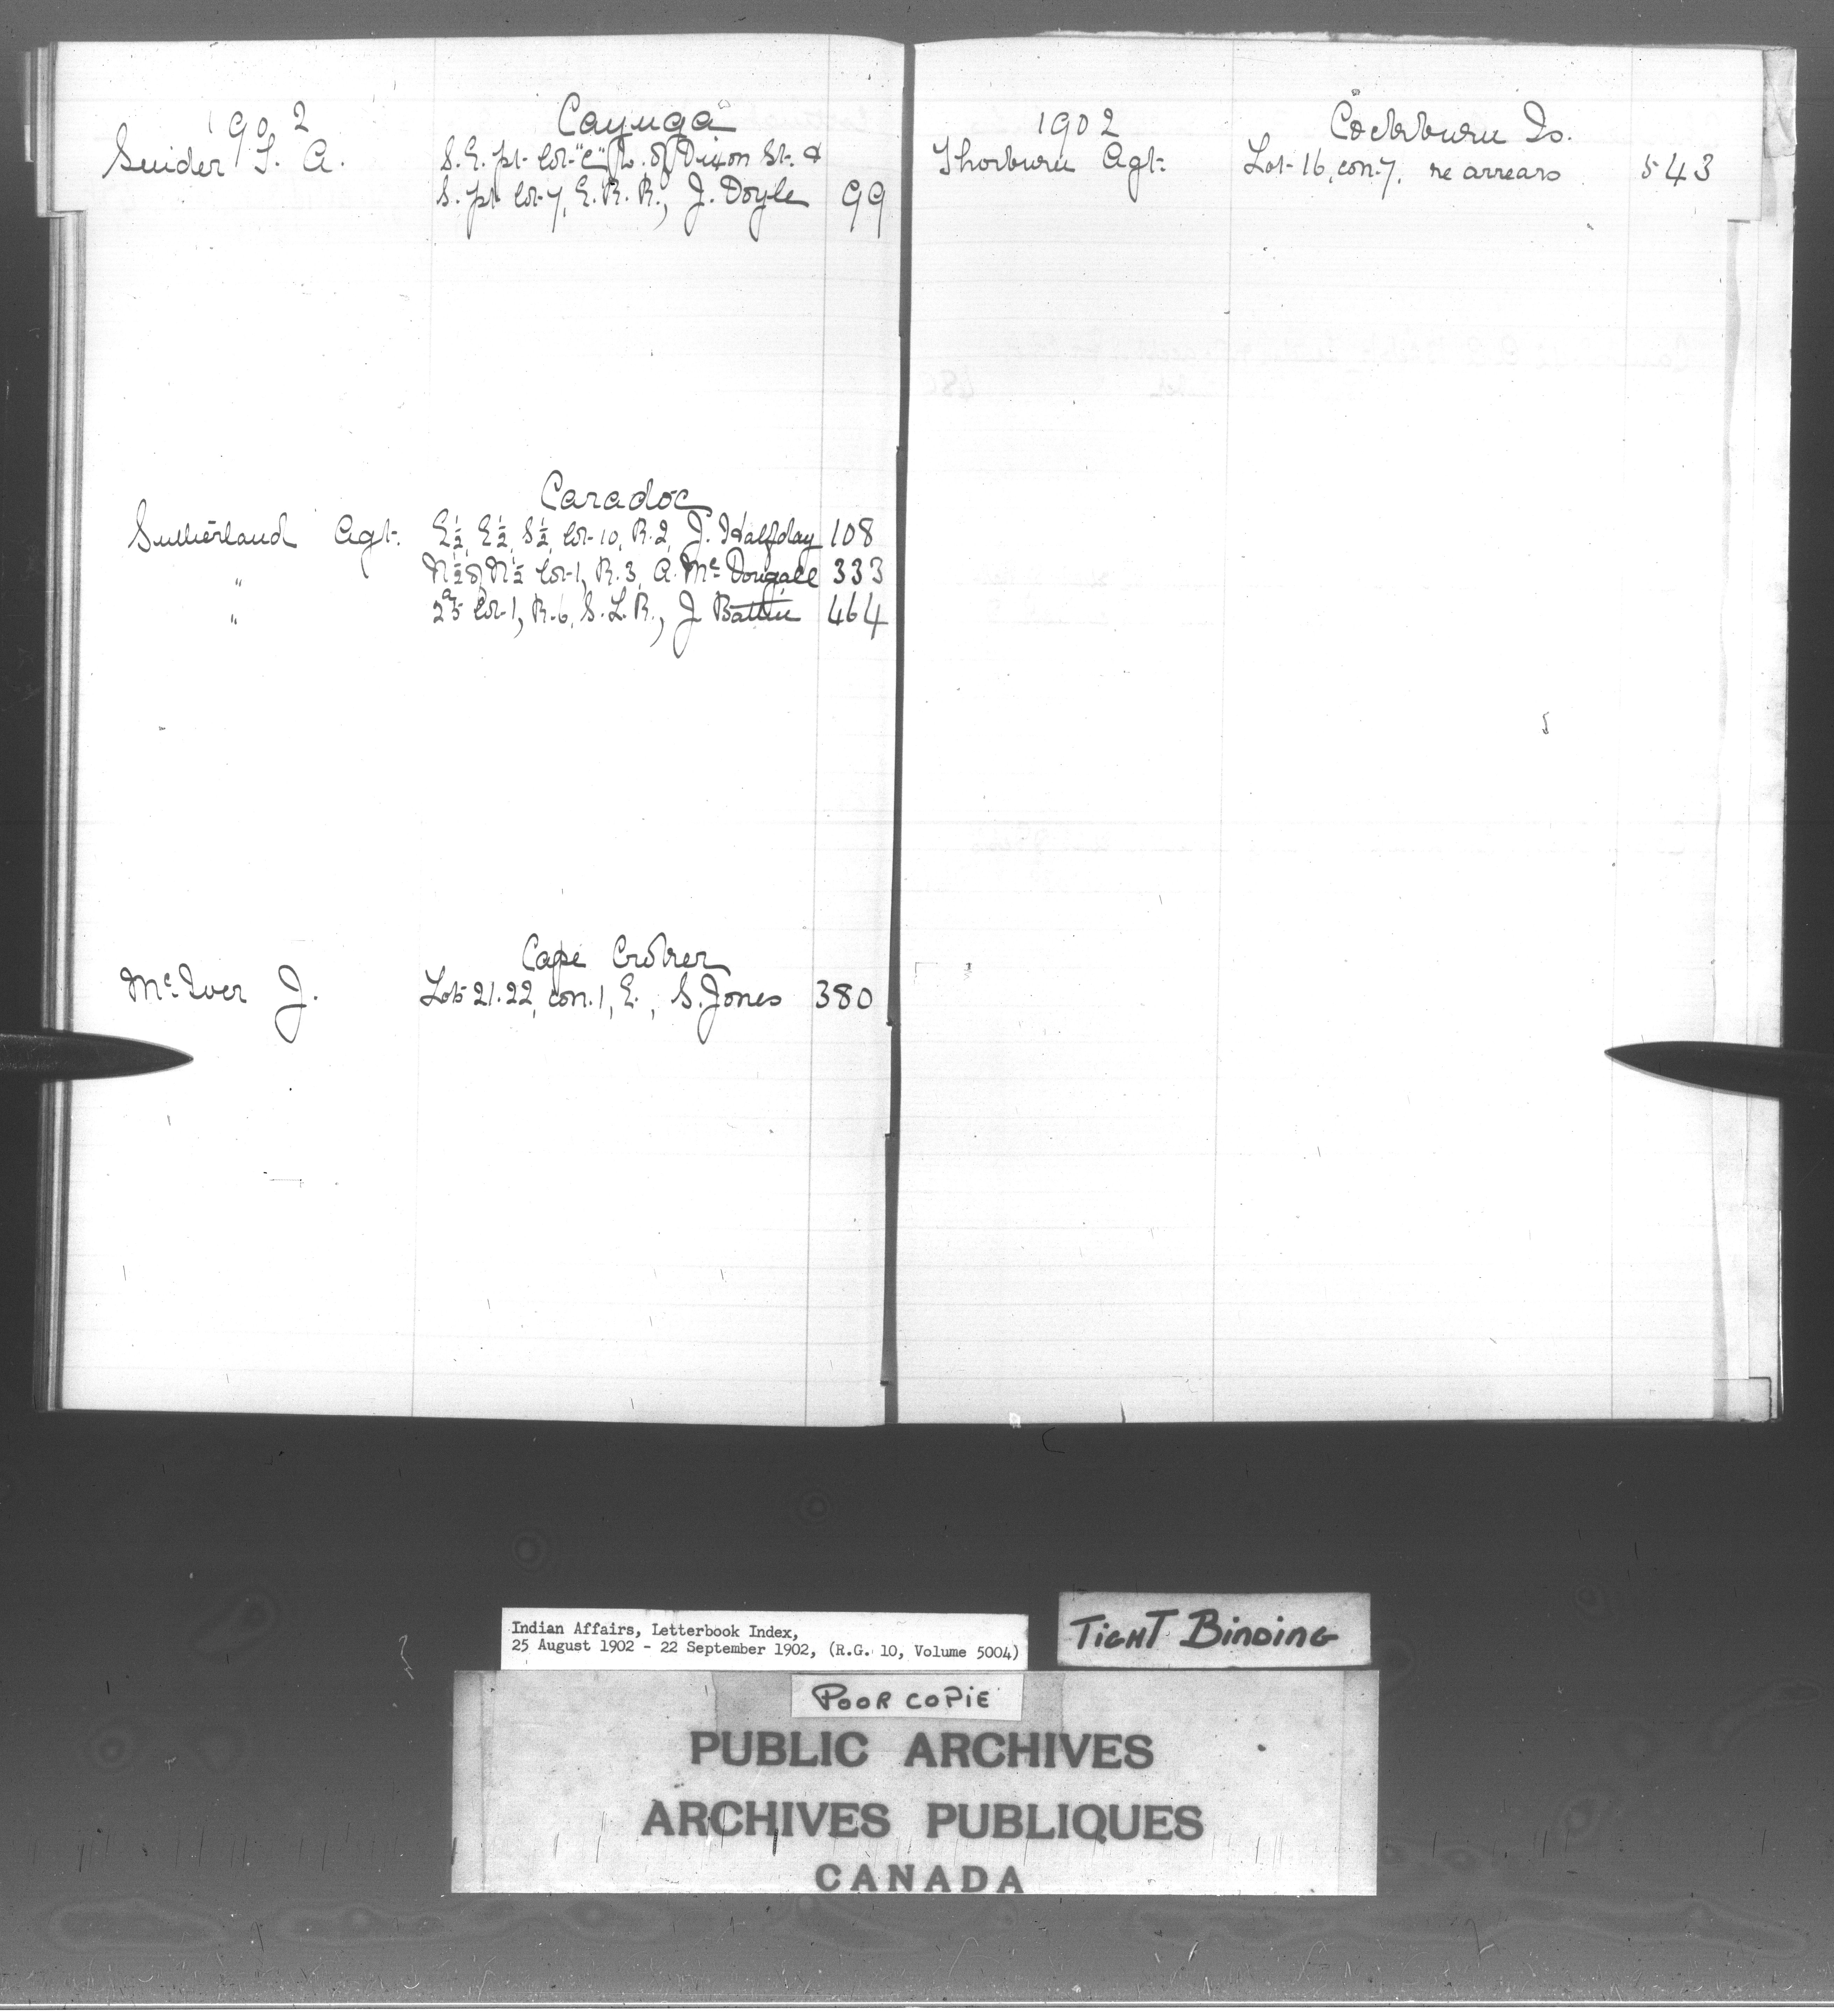 1902 Cayuga
Snider T. A. S. E. pt. lot "C" E. of Dixon St. &
S. pt lot 7, E. R. R., J. Doyle 99
Caradoc
Sutherland Agt. E½, E½, S½, lot 10, R. 2, J. Halfday 108
" N½ of N½ lot 1, R. 3, A. McDougall 333
" lot 1, R. 6, S. L. R., J. Battie 464
Cape Croker
McIver J. Lots 21. 22, con. 1, E., S. Jones 380
1902 Cockburn Is.
Thorburn Agt. Lot 16, con. 7, re arrears 543
Indian Affairs, Letterbook Index,
25 August 1902 - 22 September 1902, (R.G. 10, Volume 5004)
TIGHT BINDING
POOR COPIE
PUBLIC ARCHIVES
ARCHIVES PUBLIQUES
CANADA